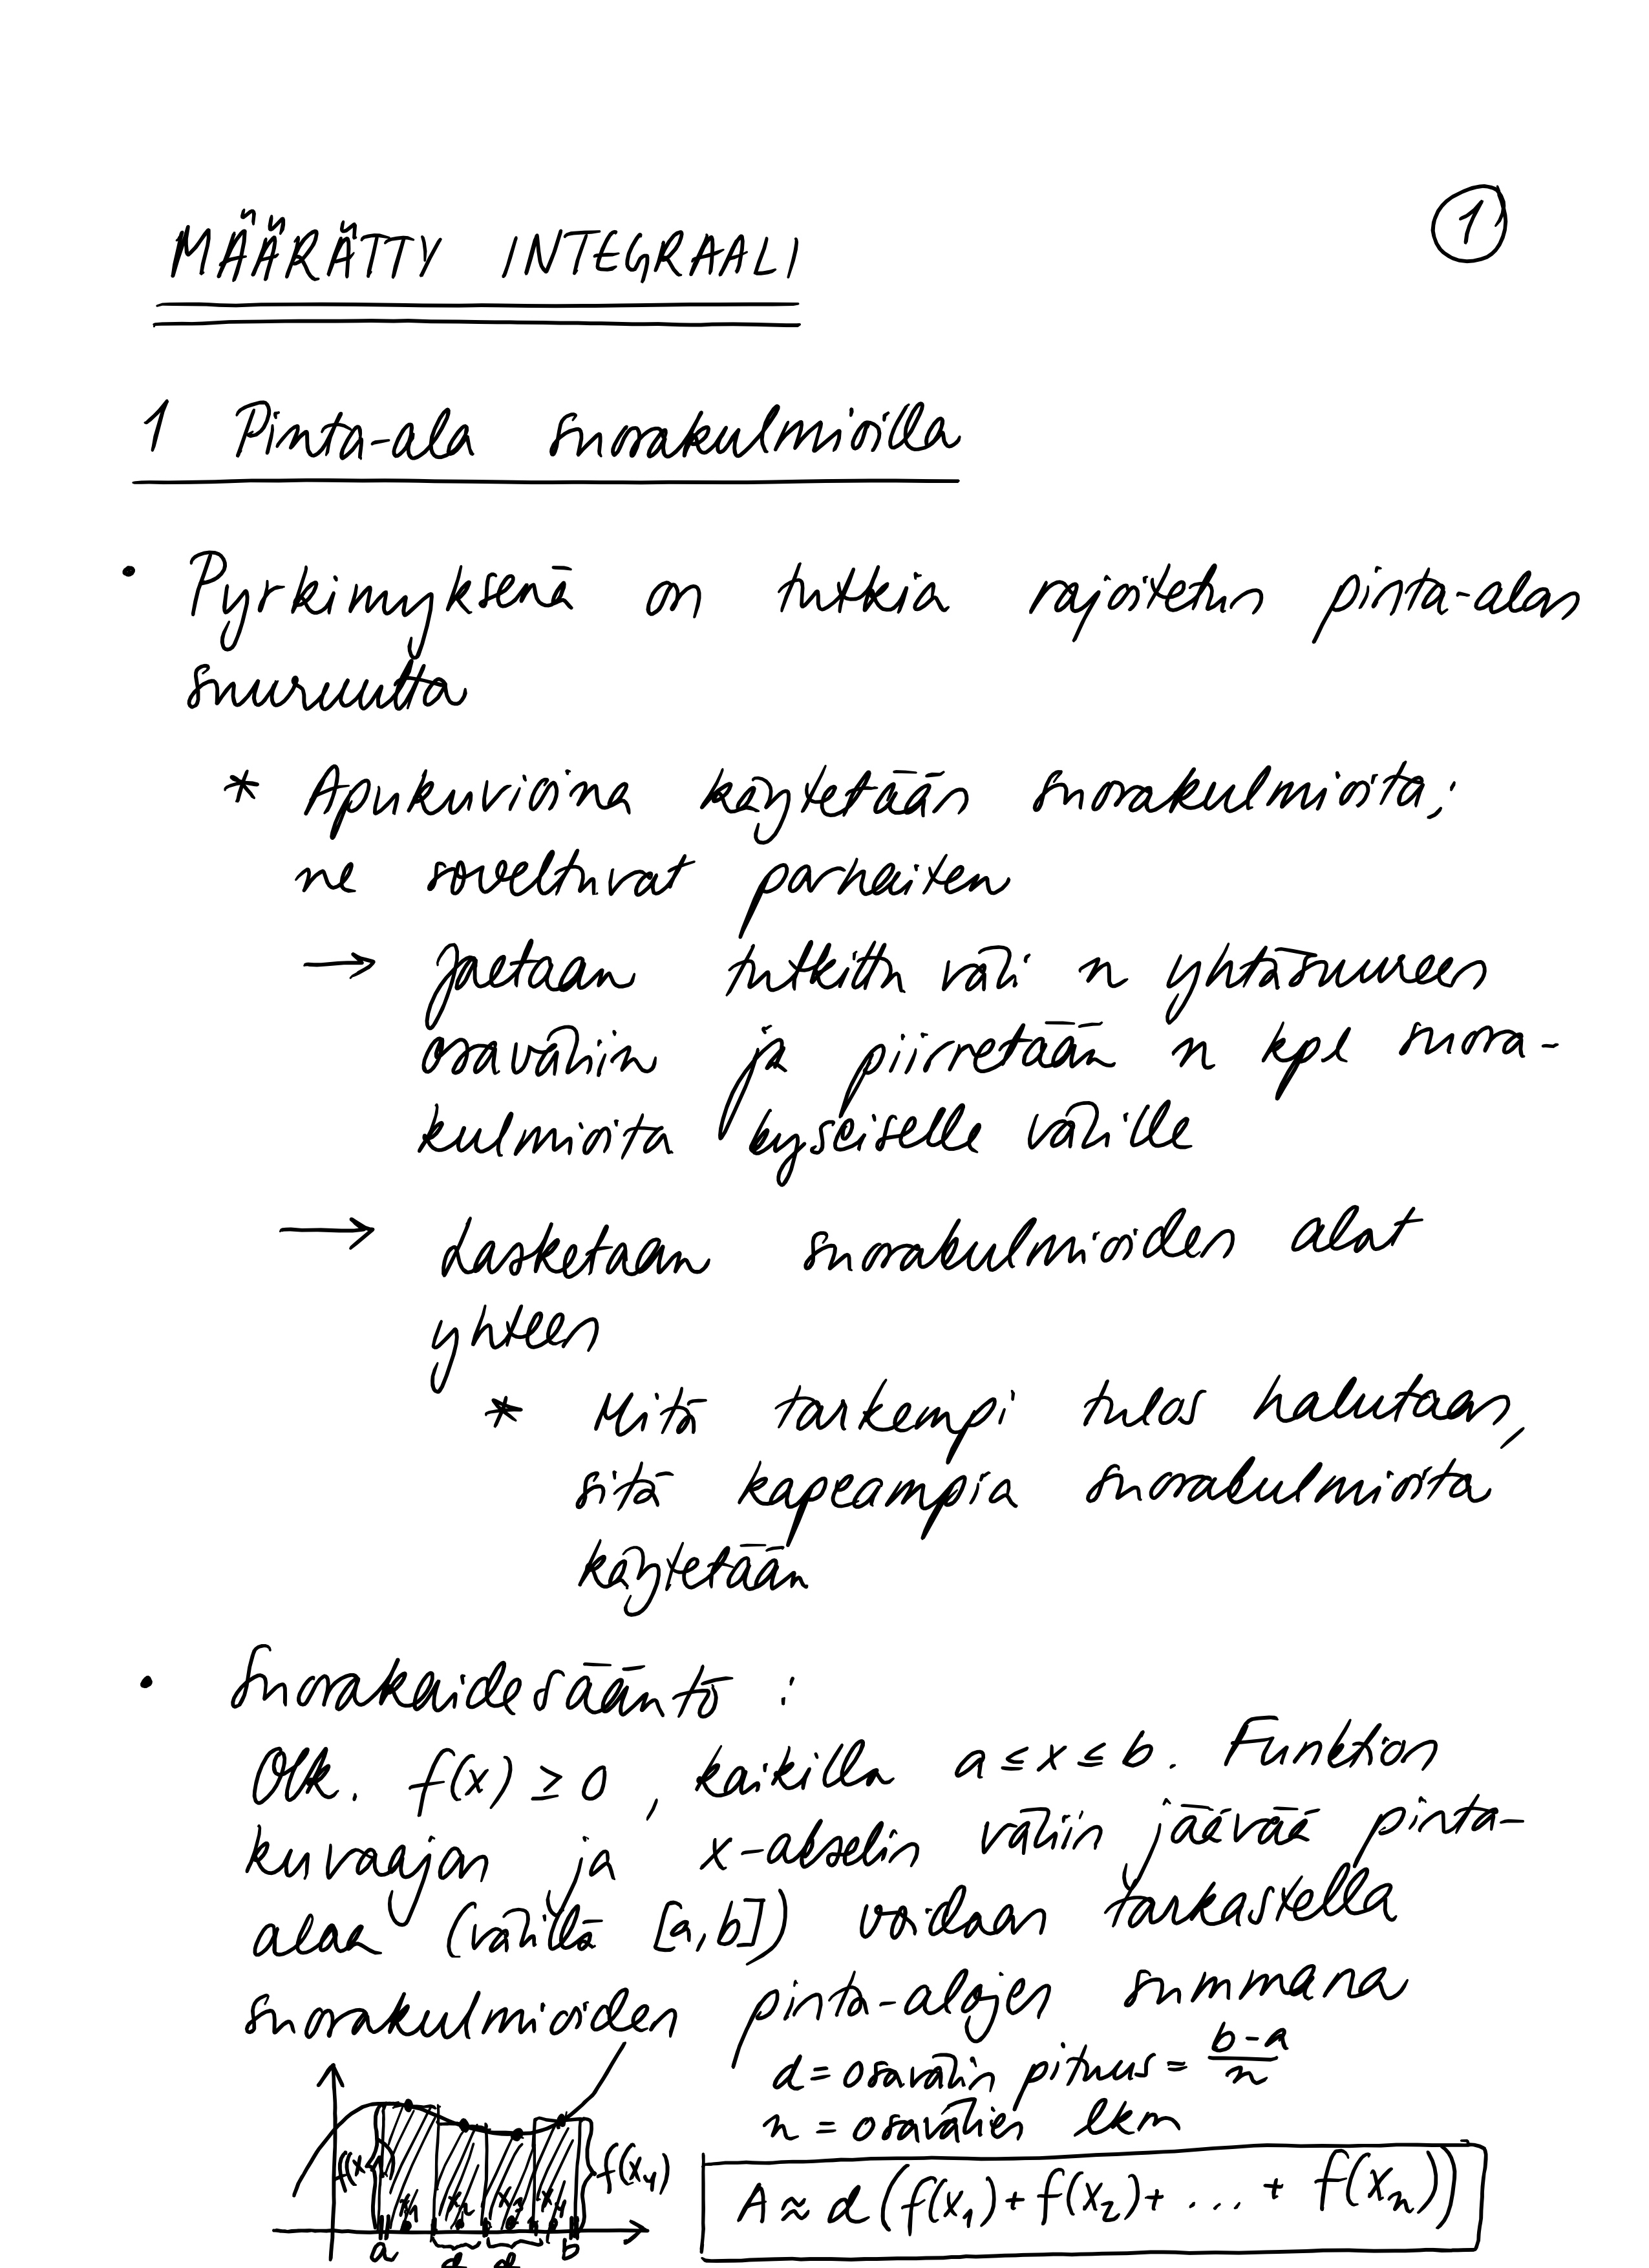 MÄÄRÄTTY INTEGRAALI
1
1 Pinta-ala suorakulmioilla
• Pyrkimyksenä on tutkia rajoitetun pinta-alan
suuruutta
* Apukuvioina käytetään suorakulmioita;
ne soveltuvat parhaiten
→ Jaetaan tutkittu väli n yhtäsuureen
osaväliin ja piirretään n kpl suora-
kulmioita kyseiselle välille
→ Lasketaan suorakulmioiden alat
yhteen
* Mitä tarkempi tulos halutaan,
sitä kapeampia suorakulmioita
käytetään
• Suorakaidesääntö :
Olk. f(x) ≥ 0, kaikilla a ≤ x ≤ b. Funktion
kuvaajan ja x-akselin väliin jäävää pinta-
alaa (välillä [a,b]) voidaan tarkastella
suorakulmioiden pinta-alojen summana
d = osavälin pituus = (b-a)/n
n = osavälien lkm
f(x₁) f(x₄)
x₁ x₂ x₃ x₄
a d d b
A ≈ d (f(x₁) + f(x₂) + ... + f(xₙ))